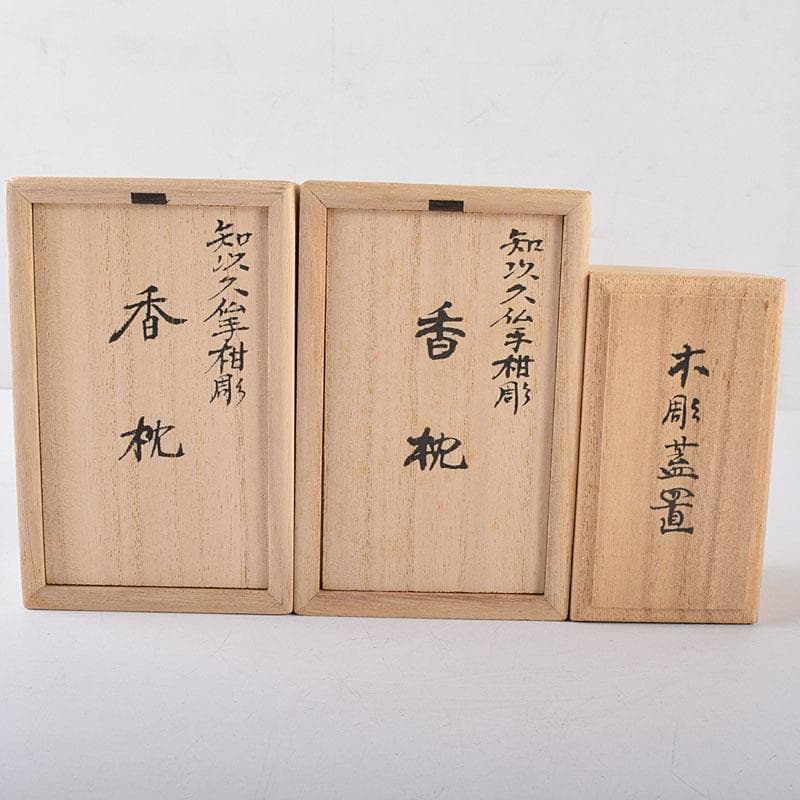 知次久仏手柑彫
香枕
知次久仏手柑彫
香枕
木彫蓋置